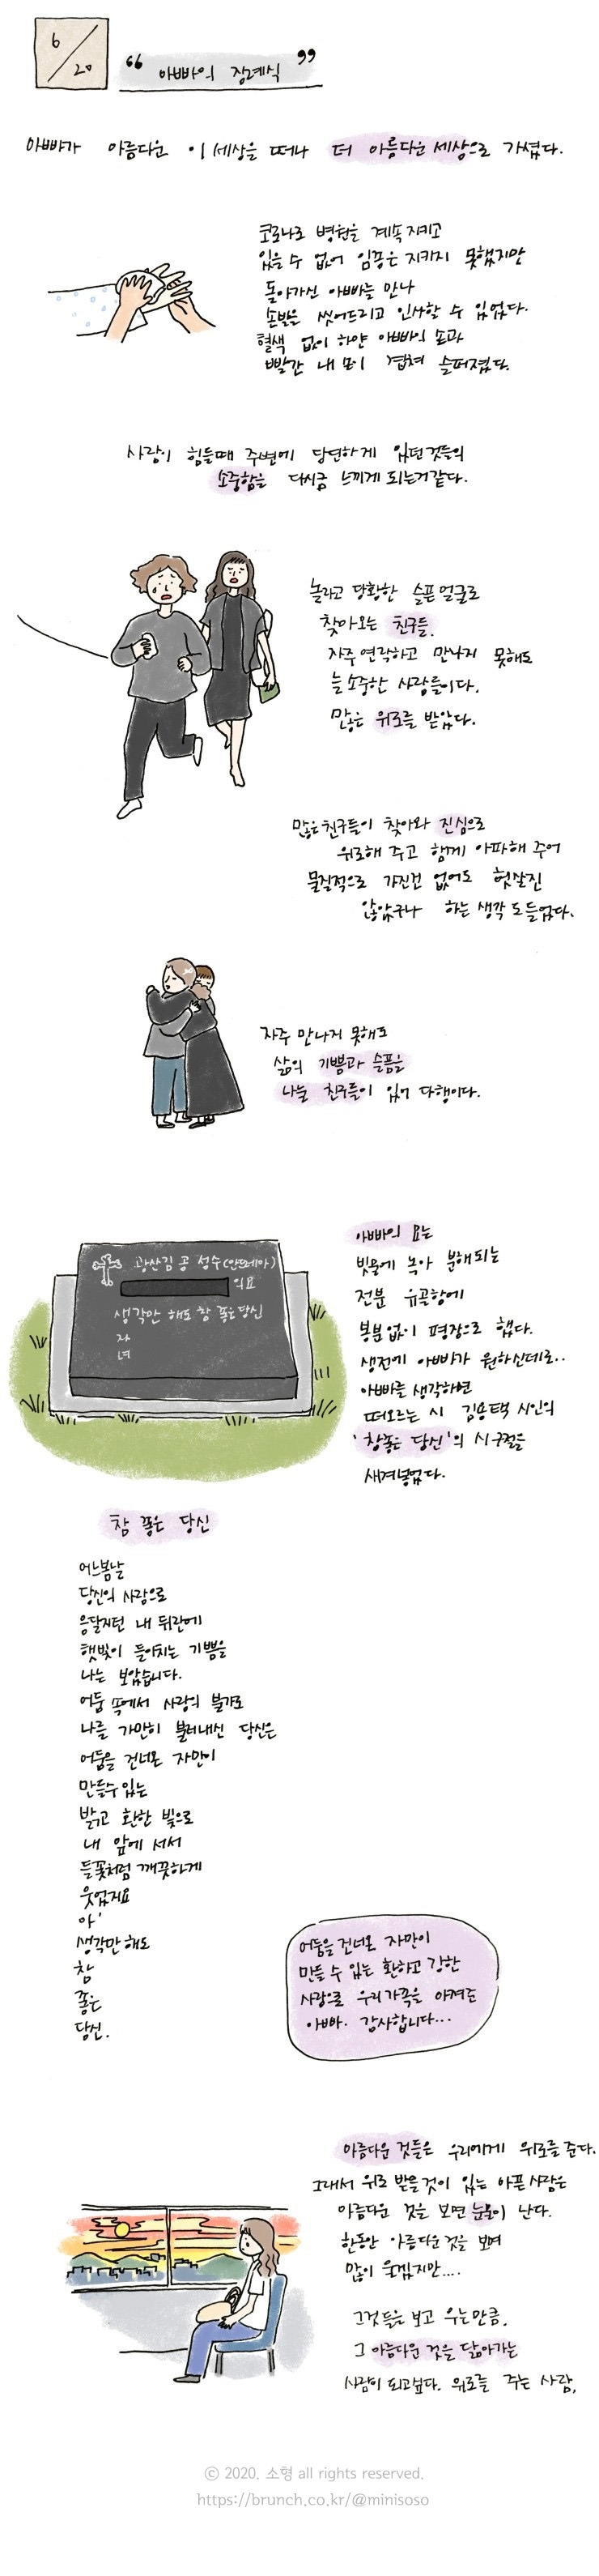 6/20
“ 아빠의 장례식 ”
아빠가 아름다운 이 세상을 떠나 더 아름다운 세상으로 가셨다.
코로나로 병원을 계속 지키고
있을 수 없어 임종은 지키지 못했지만
돌아가신 아빠를 만나
손발을 씻어드리고 인사할 수 있었다.
혈색 없이 하얀 아빠의 손과
빨간 내 손이 겹쳐 슬퍼졌다.
사람이 힘들때 주변에 당연하게 있던것들의
소중함을 다시금 느끼게 되는거같다.
놀라고 당황한 슬픈얼굴로
찾아오는 친구들.
자주 연락하고 만나지 못해도
늘 소중한 사람들이다.
많은 위로를 받았다.
많은 친구들이 찾아와 진심으로
위로해 주고 함께 아파해 주어
물질적으로 가진건 없어도 헛살진
않았구나 하는 생각도 들었다.
자주 만나지 못해도
삶의 기쁨과 슬픔을
나눌 친구들이 있어 다행이다.
광산김공 성수(안드레아)
의묘
생각만 해도 참 좋은당신
자
녀
아빠의 묘는
빗물에 녹아 분해되는
전분 유골함에
봉분없이 평장으로 했다.
생전에 아빠가 원하신데로..
아빠를 생각하면
떠오르는 시 김용택 시인의
'참좋은 당신'의 시구절을
새겨넣었다.
참 좋은 당신
어느봄날
당신의 사랑으로
응달지던 내 뒤란에
햇빛이 들이치는 기쁨을
나는 보았습니다.
어둠 속에서 사랑의 불가로
나를 가만히 불러내신 당신은
어둠을 건너온 자만이
만들수있는
밝고 환한 빛으로
내 앞에 서서
들꽃처럼 깨끗하게
웃었지요
아'
생각만해도
참
좋은
당신.
어둠을 건너온 자만이
만들 수 있는 환하고 강한
사랑으로 우리가족을 아껴준
아빠. 감사합니다...
아름다운 것들은 우리에게 위로를 준다.
그래서 위로 받을것이 있는 아픈사람은
아름다운 것을 보면 눈물이 난다.
한동안 아름다운것을 보며
많이 울겠지만....
그것들을 보고 우는만큼.
그 아름다운 것을 닮아가는
사람이 되고싶다. 위로를 주는 사람.
© 2020. 소형 all rights reserved.
https://brunch.co.kr/@minisoso